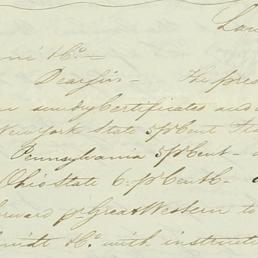 Dear Sir - The pres
sundry Certificates and
New York State 5 p Cent
Pennsylvania 5 p Cent -
Ohio State 6 - p Cent -
p Great Western to
with instruct